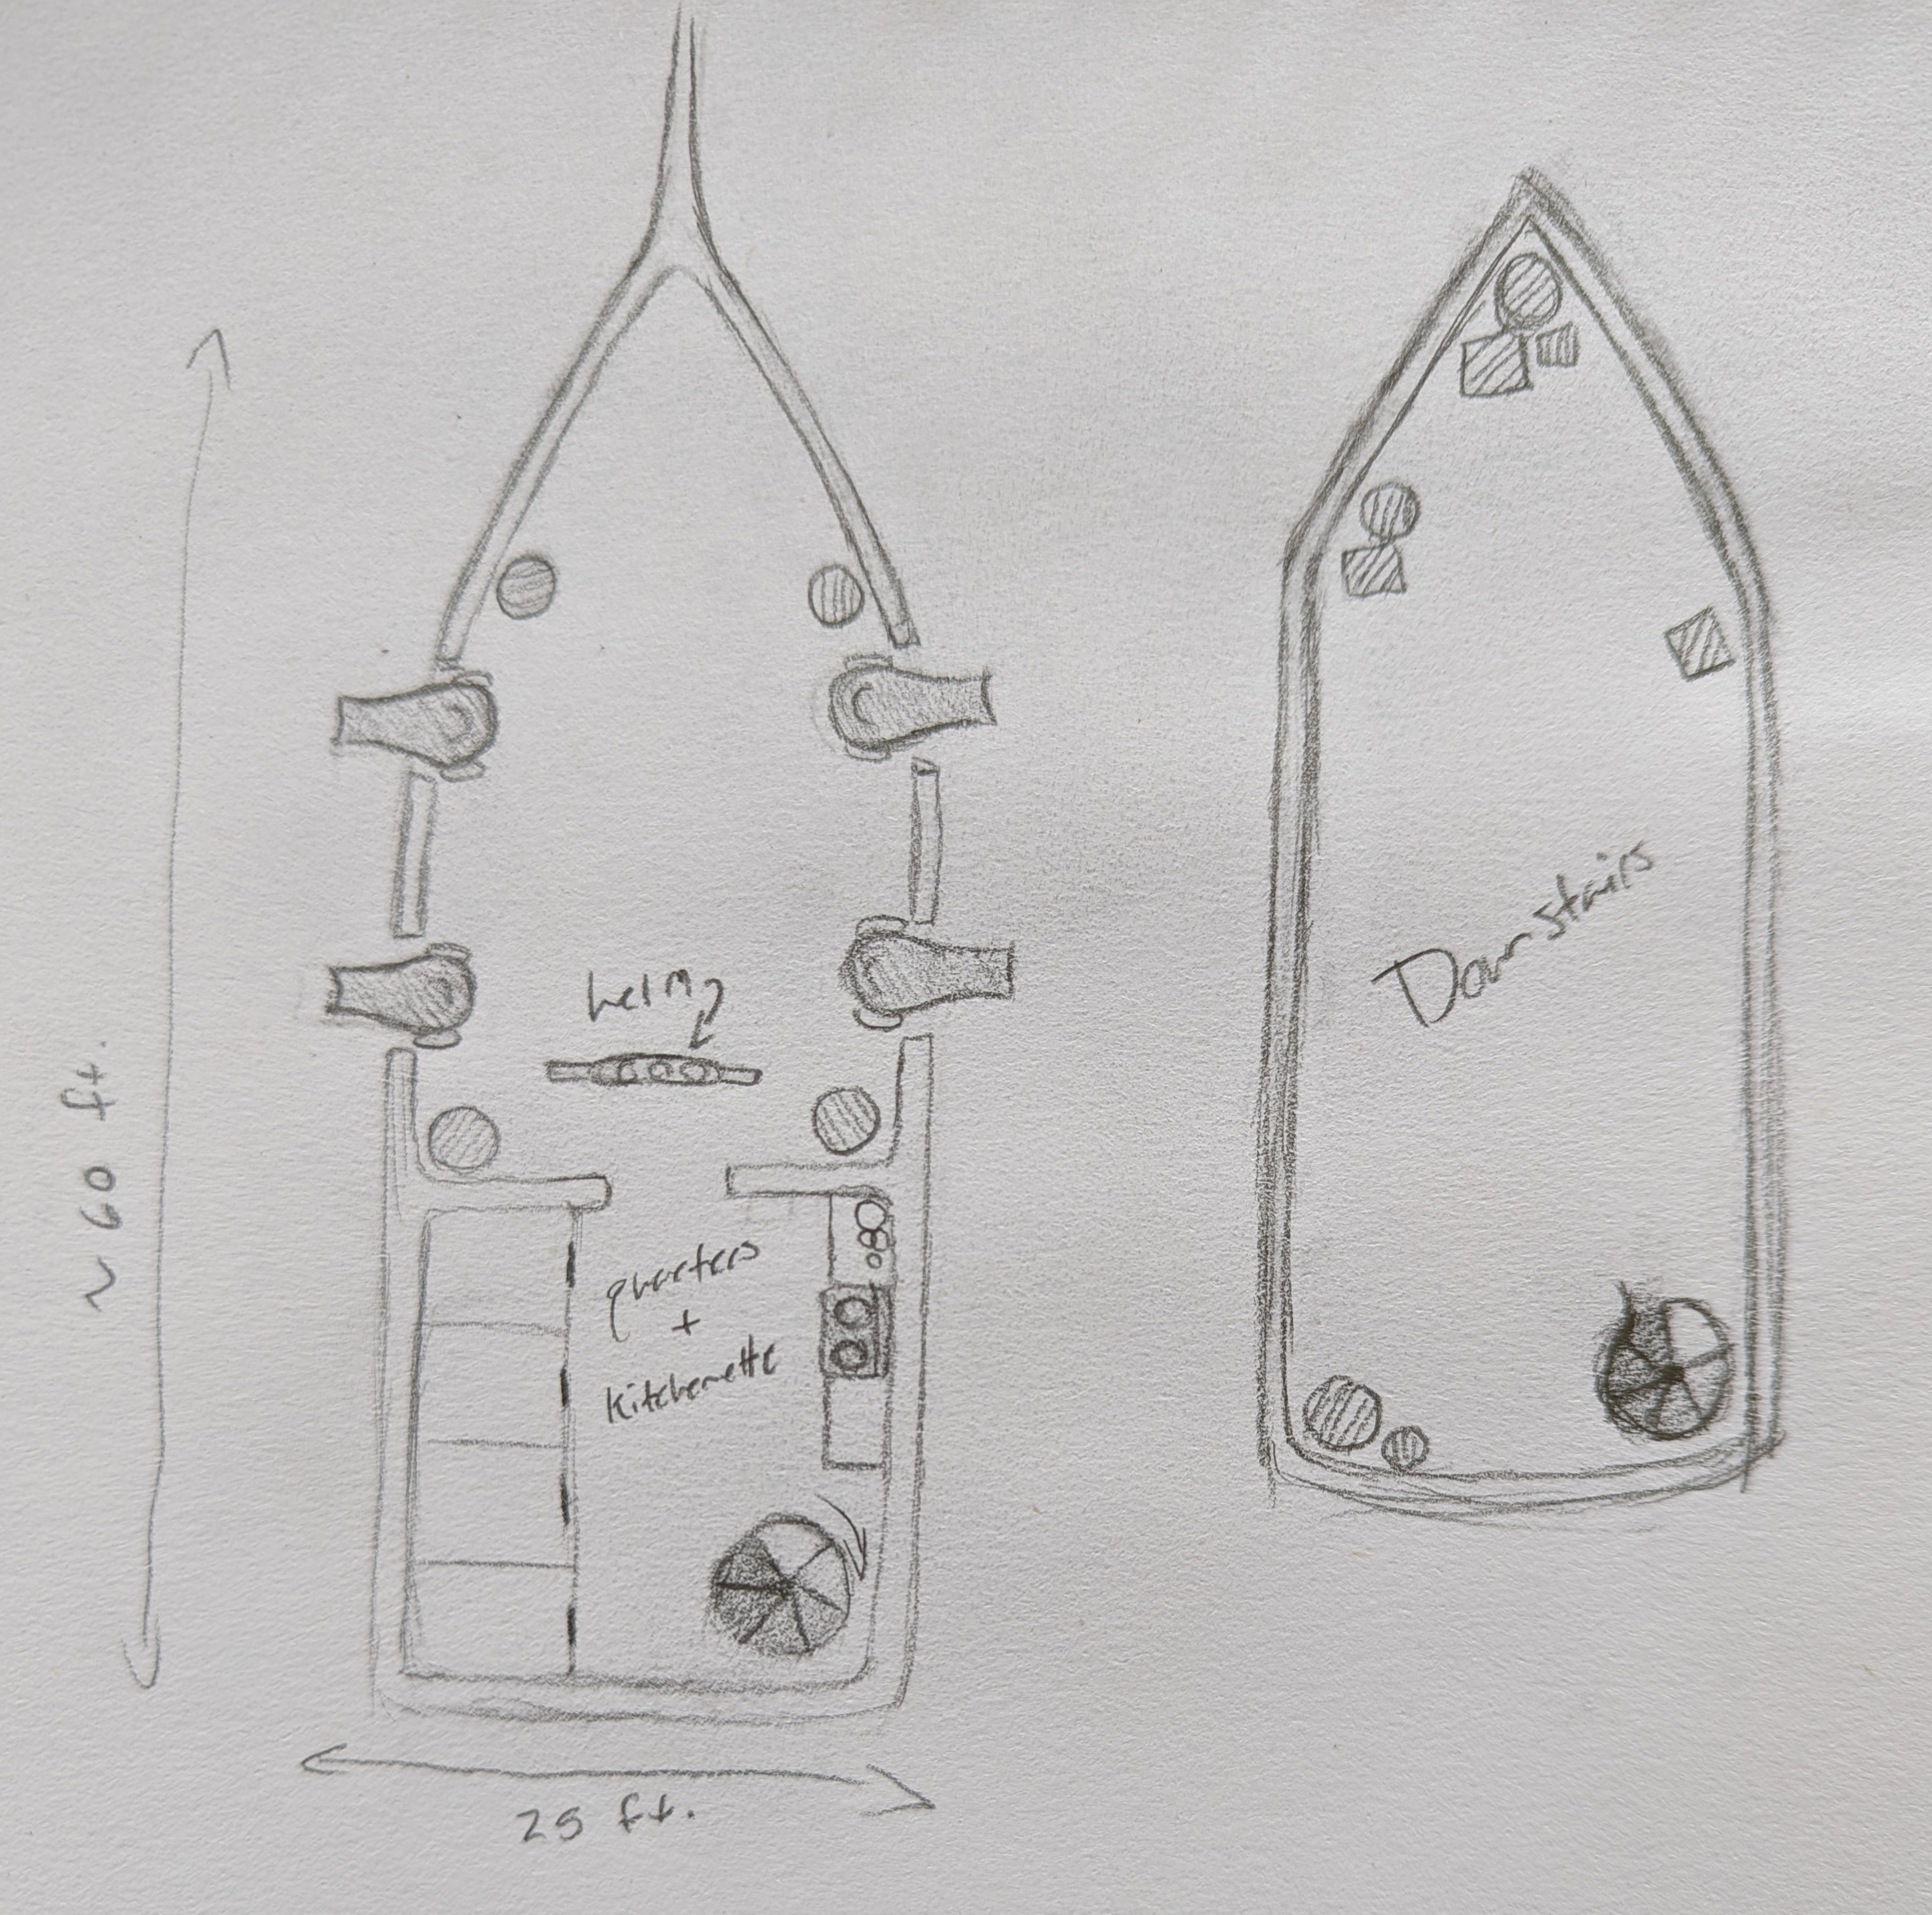 ~ 60 ft.
helm
quarters
+
kitchenette
25 ft.
Downstairs